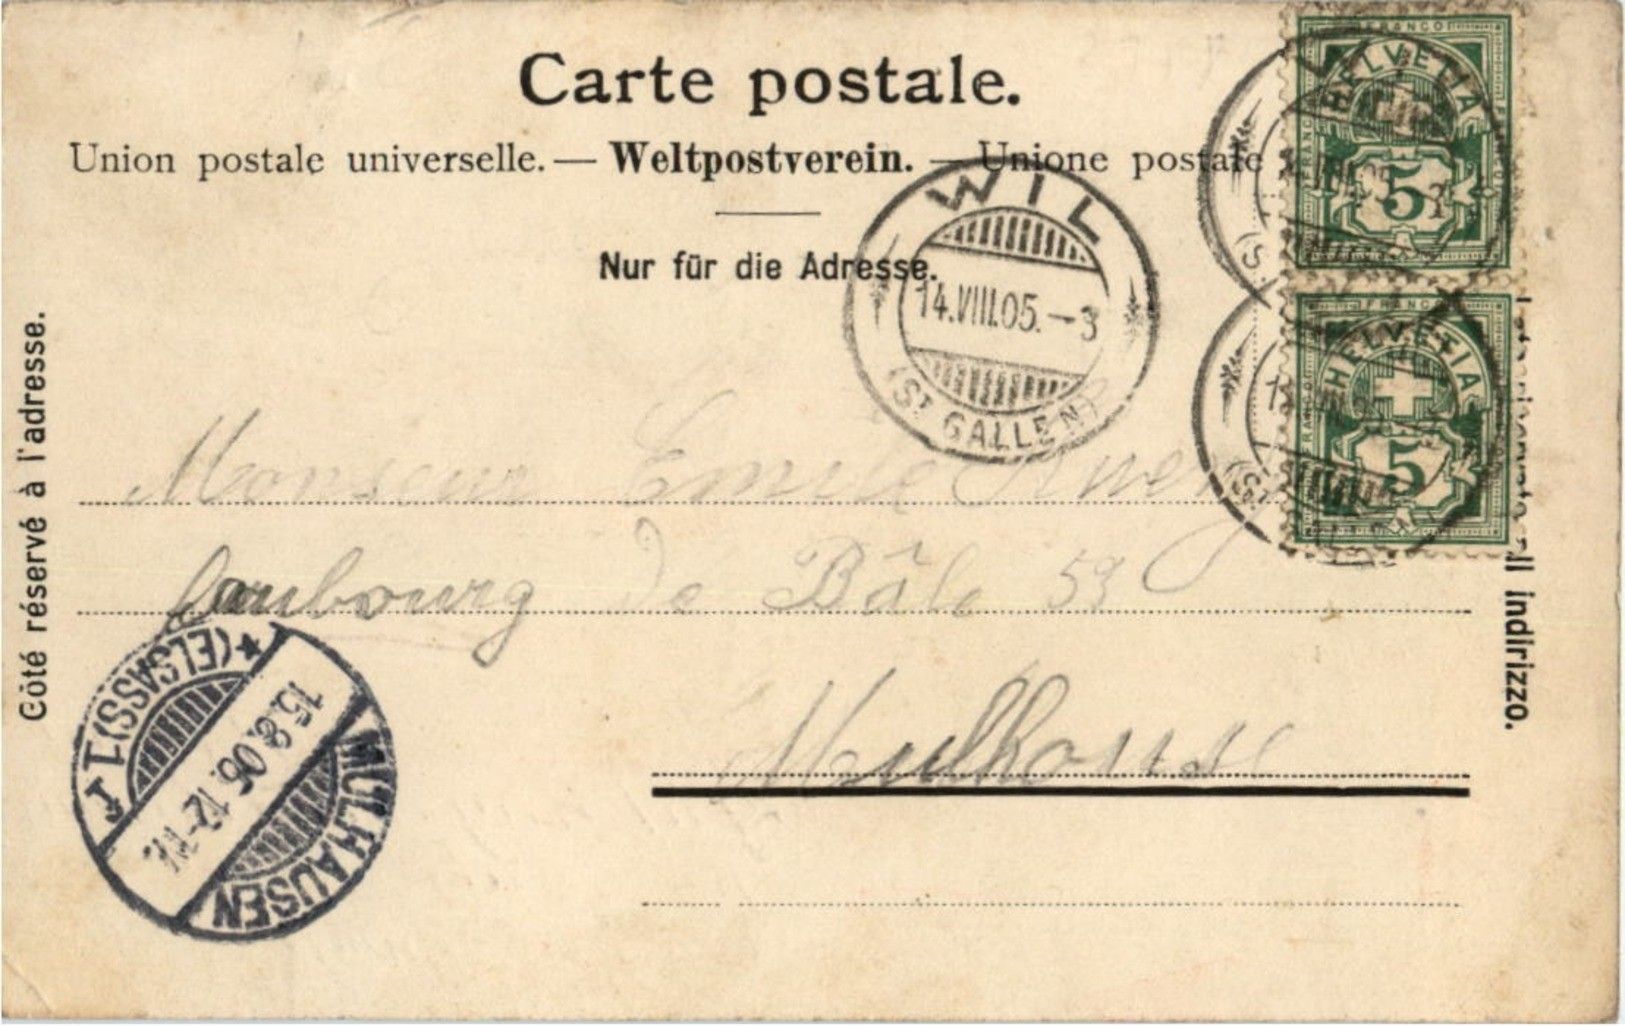 Carte postale.
Union postale universelle. — Weltpostverein. — Unione postale
Nur für die Adresse.
Côté réservé à l'adresse.
all indirizzo.
FRANCO
HELVETIA
5
FRANCO
HELVETIA
5
WIL
14.VIII.05.-3
(ST GALLEN)
Monsieur Emile
faubourg de Bâle 59
Mulhouse
MÜLHAUSEN
15.8.05. 12-1N.
*(ELSASS) 1